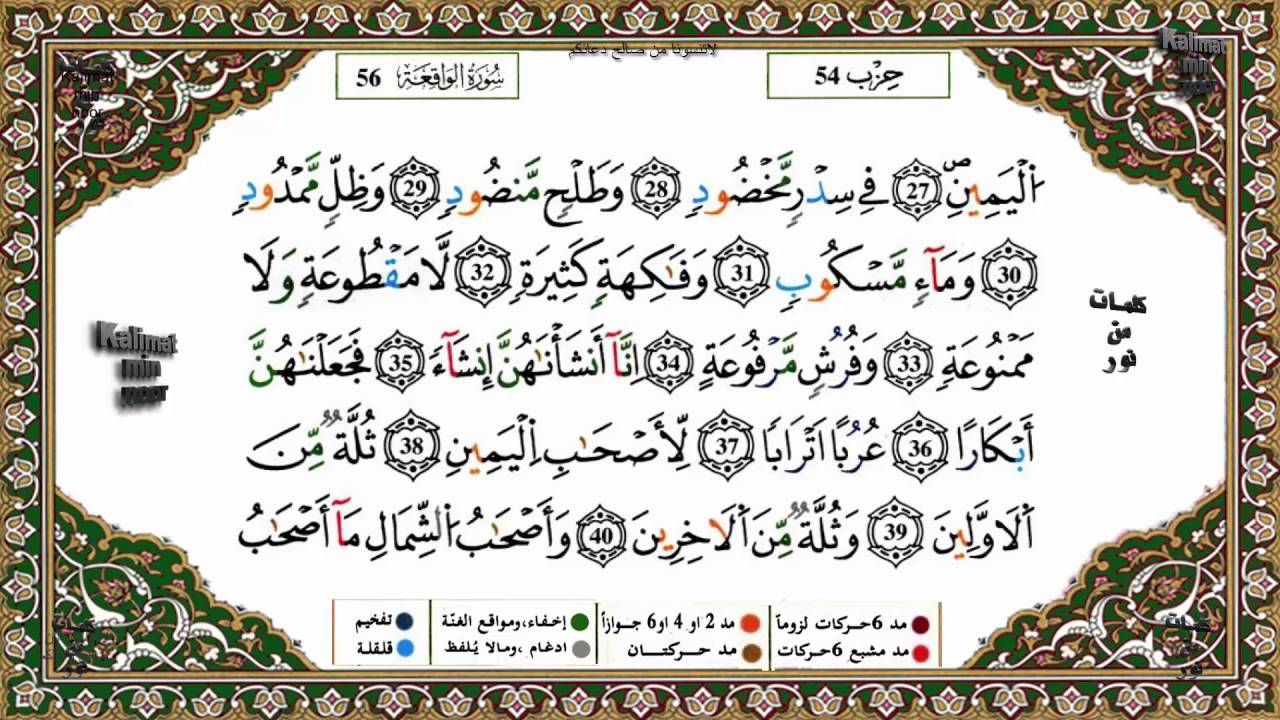 لاتنسونا من صالح دعائكم
حِزْب 54
سُورَةُ الوَاقِعَة 56
Kalimat
min
noor
Kalimat
min
noor
اَ۬لْيَمِينِۖ 27 فِے سِدْرٖ مَّخْضُودٖ 28 وَطَلْحٖ مَّنضُودٖ 29 وَظِلّٖ مَّمْدُودٖ
30 وَمَآءٖ مَّسْكُوبٖ 31 وَفَٰكِهَةٖ كَثِيرَةٖ 32 لَّا مَقْطُوعَةٖ وَلَا
مَمْنُوعَةٖ 33 وَفُرُشٖ مَّرْفُوعَةٍ 34 اِنَّآ أَنشَأْنَٰهُنَّ إِنشَآءٗ 35 فَجَعَلْنَٰهُنَّ
أَبْكَارًا 36 عُرُبًا اَتْرَابٗا 37 لِّأَصْحَٰبِ اِ۬لْيَمِينِ 38 ثُلَّةٞ مِّنَ
اَ۬لَاوَّلِينَ 39 وَثُلَّةٞ مِّنَ اَ۬لَاخِرِينَ 40 وَأَصْحَٰبُ اُ۬لشِّمَالِ مَآ أَصْحَٰبُ
Kalimat
min
noor
كلمات
من
نور
مد 6 حركات لزوماً
مد 2 او 4 او 6 جوازاً
إخفاء،ومواقع الغنّة
تفخيم
مد مشبع 6 حركات
مد حركتان
ادغام ،ومالا يُلفظ
قلقلة
كلمات
من
نور